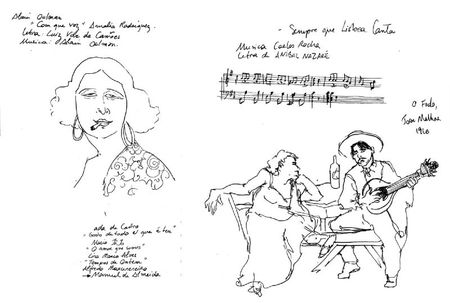 Alain Oulman
"Com que voz" Amalia Rodriguez.
Letra: Luiz Vaz de Camões
Musica: Alain Oulman.
- Sempre que Lisboa Canta
Musica Carlos Rocha
Letra de ANIBAL NAZARÉ
O Fado,
Malhoa
1910
de Castro
"Gosto de tudo o que é teu
"O amor que
Maria Alves
"Tempos de Ontem"
Alfredo
Manuel de Almeida